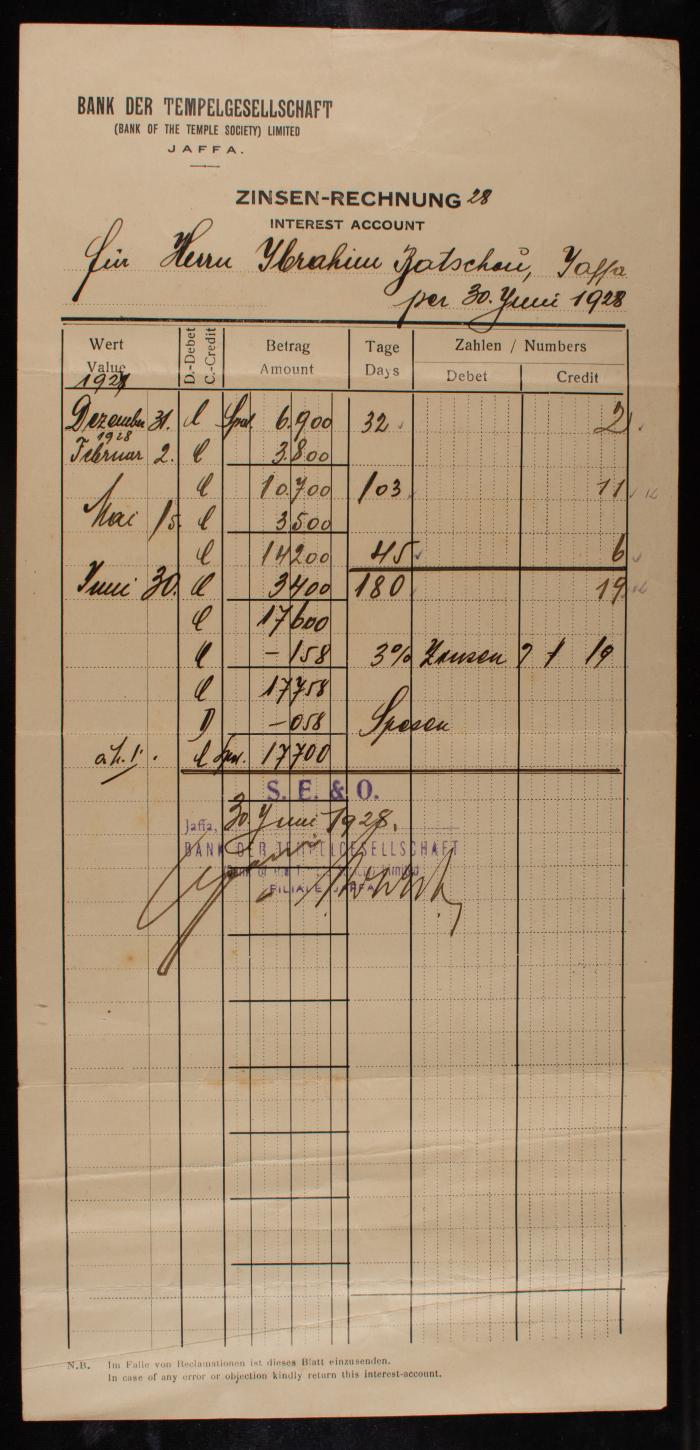 BANK DER TEMPELGESELLSCHAFT
(BANK OF THE TEMPLE SOCIETY) LIMITED
JAFFA.
ZINSEN-RECHNUNG 28
INTEREST ACCOUNT
für Herrn Ibrahim Batschou, Jaffa
per 30. Juni 1928
Wert Value D.-Debet C.-Credit Betrag Amount Tage Days Zahlen / Numbers Debet Credit
1927
Dezember 31. C 6.900 32 2
1928
Februar 2. C 3.800
C 10.700 103 11
Mai 15. C 3500
C 14200 45 6
Juni 30. C 3400 180 19
C 17600
C -158 3% Zinsen 19
C 17758
D -058 Spesen
C 17700
S. E. & O.
Jaffa, 30. Juni 1928.
BANK DER TEMPELGESELLSCHAFT
FILIALE JAFFA
N.B. Im Falle von Reclamationen ist dieses Blatt einzusenden.
In case of any error or objection kindly return this interest-account.